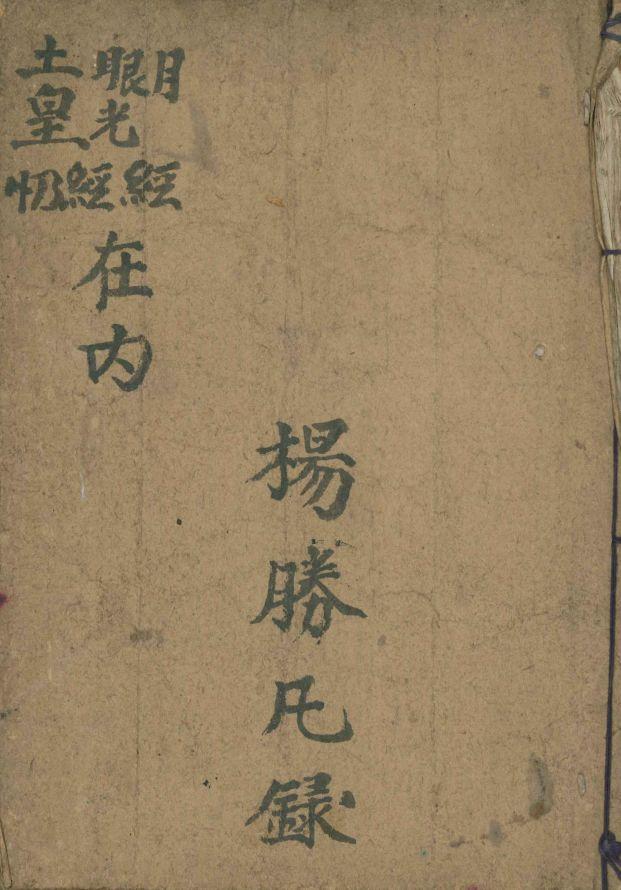 月經
眼光經
土皇
在内
楊勝凡録